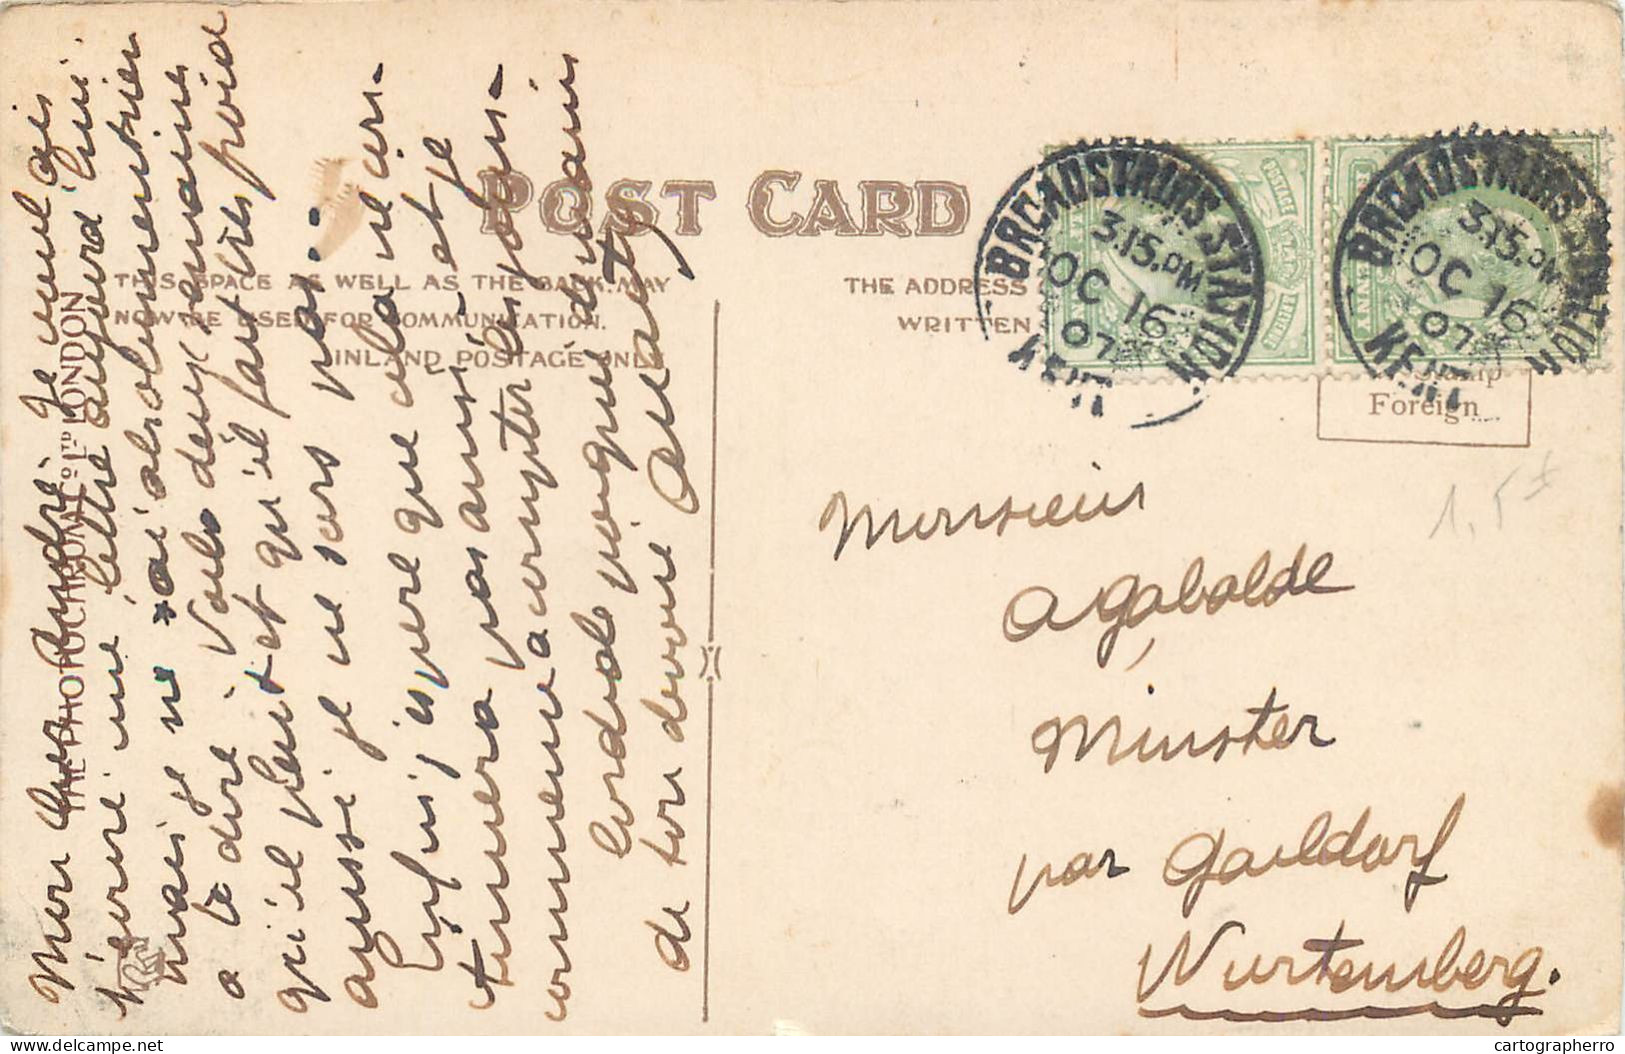 POST CARD
THIS SPACE AS WELL AS THE BACK MAY
NOW BE USED FOR COMMUNICATION.
INLAND POSTAGE ONLY
THE ADDRESS
WRITTEN
THE PHOTOCHROM Co Ltd LONDON
Foreign
BROADSTAIRS STATION
3.15.PM
OC 16
07
KENT
BROADSTAIRS STATION
3.15.PM
OC 16
07
KENT
1,5±
Mon cher André. Je voulais
t'écrire une lettre aujourd'hui.
mais je n'ai absolument rien
a te dire. Voila deux semaines
qu'il pleut et qu'il fait très froid
aussi je ne sors pas..
Enfin j'espère que cela ne con-
tinuera pas ainsi - et je
commence a compter les jours-
Cordiale poignée de main
de ton dévoué
Monsieur
Agabalde
Münster
par Gaildorf
Wurtemberg.
delcampe.net
cartographerro